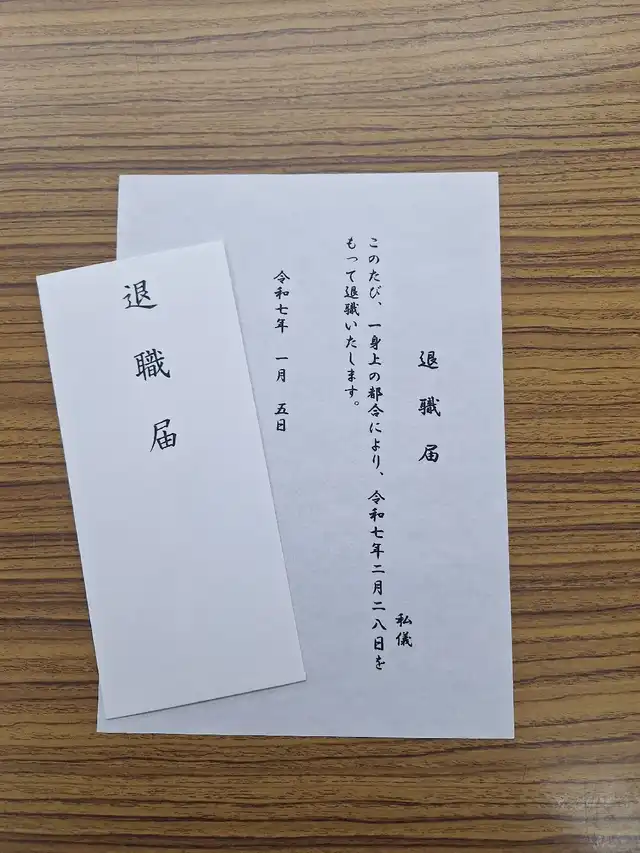 退職届
私儀
このたび、一身上の都合により、令和七年二月二八日を
もって退職いたします。
令和七年　一月　五日
退職届